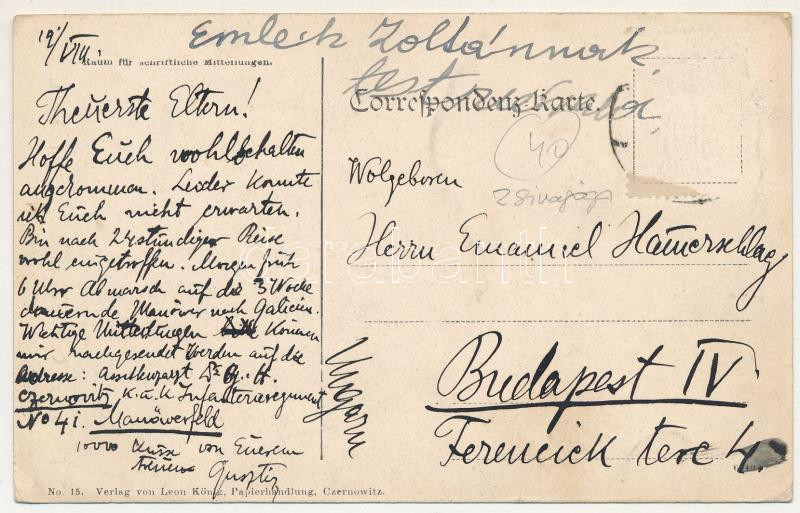 19/VIII.
Emlék Zoltánnak
Raum für schriftliche Mitteilungen.
Correspondenz-Karte.
40
Theuerste Eltern!
Hoffe Euch wohlbehalten
angekommen. Leider konnte
ich Euch nicht erwarten.
Bin nach 24stündiger Reise
wohl eingetroffen. Morgen früh
6 Uhr Abmarsch auf die 3 Woche
dauernde Manöver nach Galicien.
Wichtige Mitteilungen können
mir nachgesendet werden auf die
Adresse: Assistenzarzt Dr G. H.
Czernovitz k.u.k Infanterieregiment
No 41. Manöwerfeld
10000 Küsse von Euerem
treuen Gusztiz
Wolgeboren
Herrn Emanuel Hamerschlag
Budapest IV
Ferenciek tere 4.
Ungarn
No. 15. Verlag von Leon König, Papierhandlung, Czernowitz.
darabanth